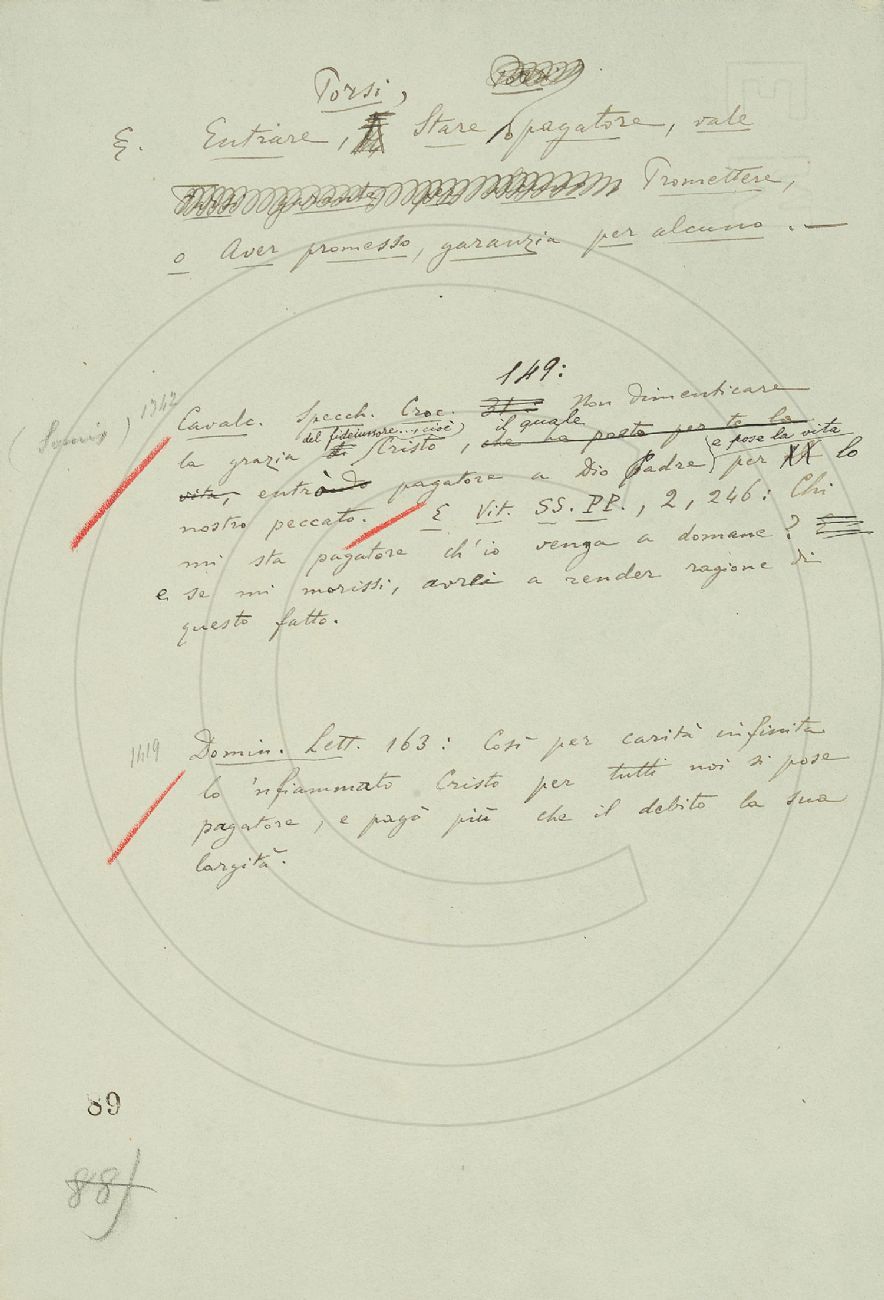 Porsi,
§. Entrare, Stare o pagatore, vale
Garante per Promettere,
o Aver promesso, garanzia per alcuno. —
149:
1342 Cavalc. Specch. Croc. Non dimenticare
del fideiussore..., cioè il quale
la grazia di Cristo, che ha posto per te la
e pose la vita
vita, entrò pagatore a Dio Padre per lo
nostro peccato. E Vit. SS. PP., 2, 246: Chi
mi sta pagatore ch'io venga a domane?
e se mi morissi, avrei a render ragione di
questo fatto.
1419 Domin. Lett. 163: Così per carità infinita
lo 'nfiammato Cristo per tutti noi si pose
pagatore, e pagò più che il debito la sua
largità.
89
88